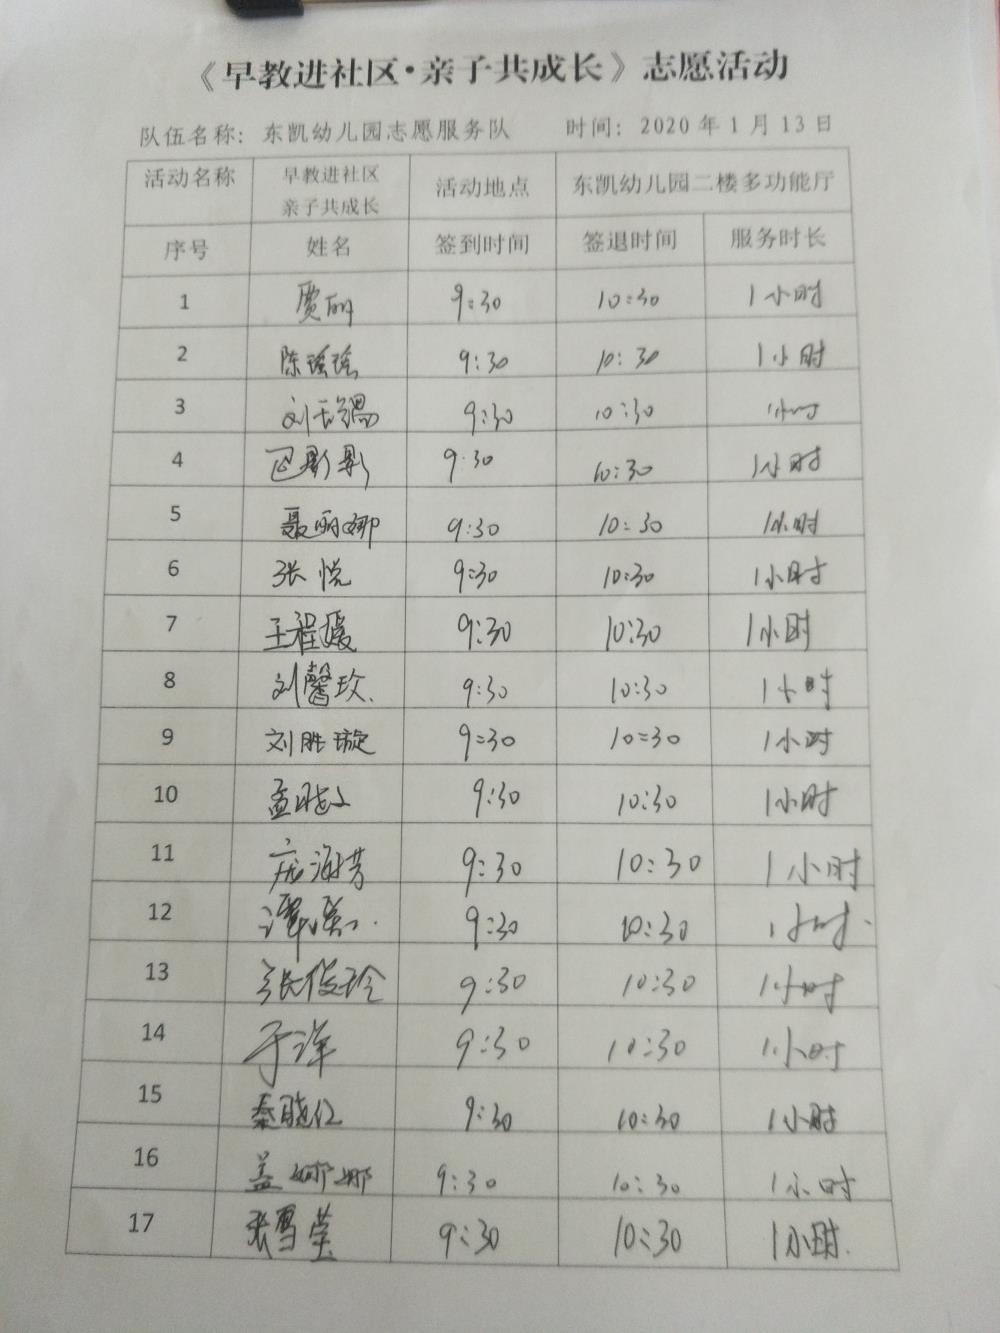 《早教进社区·亲子共成长》志愿活动
队伍名称：东凯幼儿园志愿服务队 时间：2020年1月13日
活动名称 早教进社区 亲子共成长 活动地点 东凯幼儿园二楼多功能厅
序号 姓名 签到时间 签退时间 服务时长
1 贾丽 9:30 10:30 1小时
2 陈瑶瑶 9:30 10:30 1小时
3 刘 9:30 10:30 1小时
4 影影 9:30 10:30 1小时
5 聂丽娜 9:30 10:30 1小时
6 张悦 9:30 10:30 1小时
7 王程媛 9:30 10:30 1小时
8 刘馨玫 9:30 10:30 1小时
9 刘胜璇 9:30 10:30 1小时
10 孟晓文 9:30 10:30 1小时
11 庞海芳 9:30 10:30 1小时
12 谭 9:30 10:30 1小时
13 张俊玲 9:30 10:30 1小时
14 于洋 9:30 10:30 1小时
15 秦晓红 9:30 10:30 1小时
16 盖娜娜 9:30 10:30 1小时
17 张雪莹 9:30 10:30 1小时